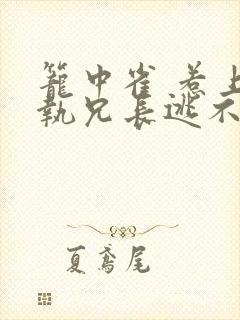 籠中雀 惹上
執兄長逃不
夏鳶尾